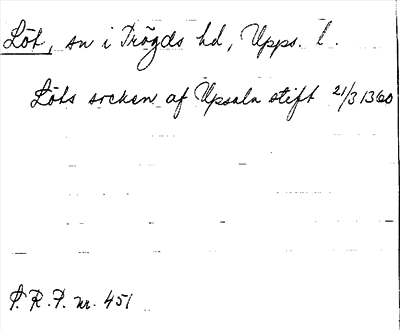 Löt, sn i Trögds hd, Upps. l.
Löts socken af Upsala stift 21/3 1360
P.R.P. nr. 451